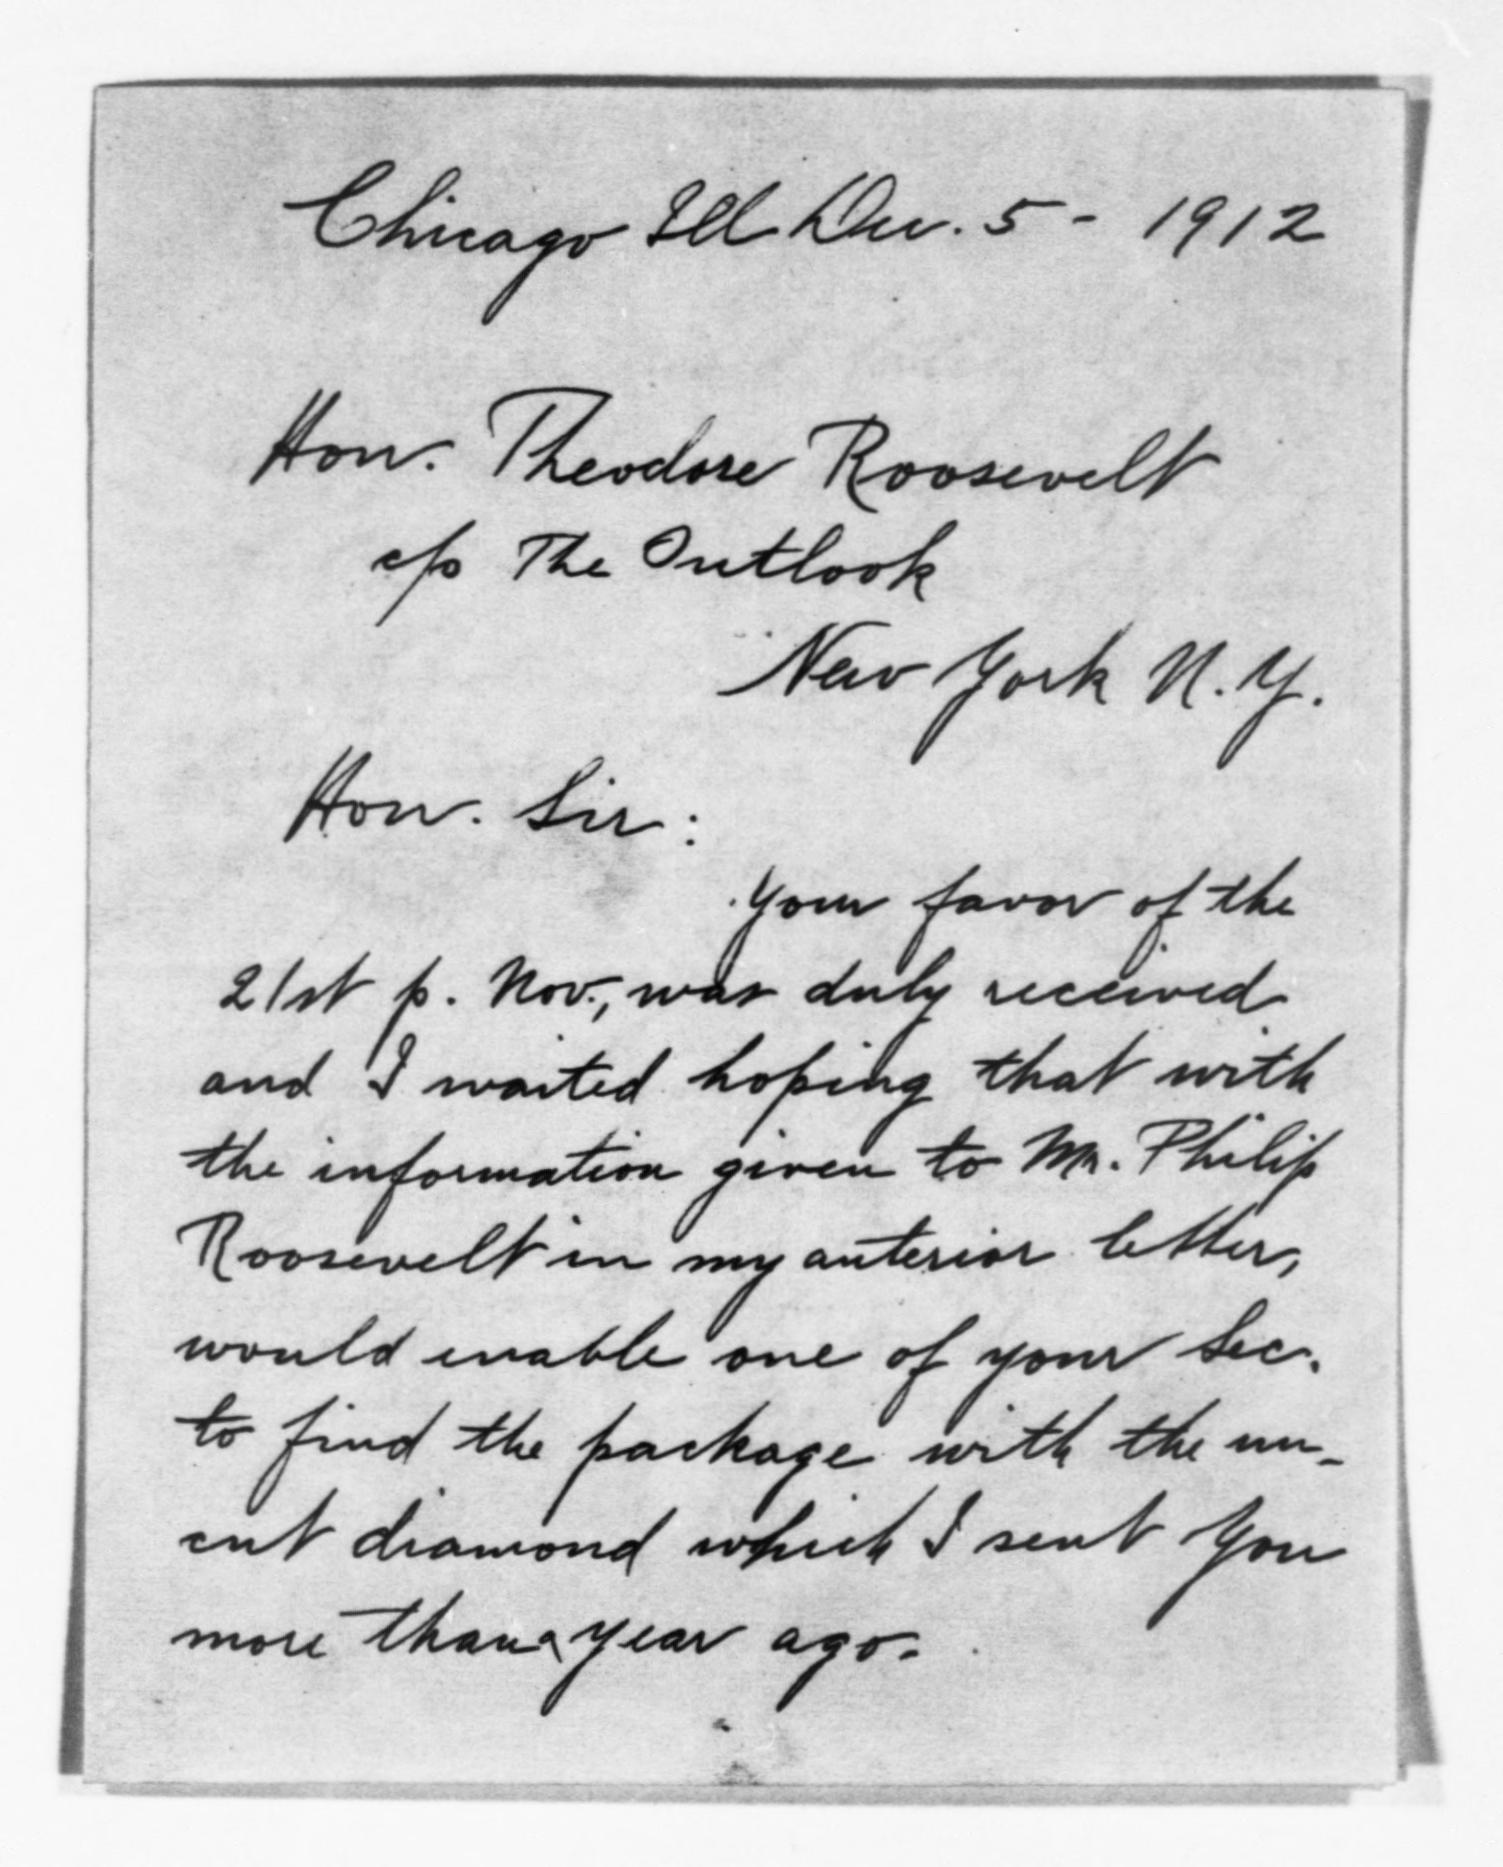 Chicago Ill Dec. 5 - 1912
Hon. Theodore Roosevelt
c/o The Outlook
New York N.Y.
Hon. Sir:
Your favor of the
21st p. Nov., was duly received
and I waited hoping that with
the information given to Mr. Philip
Roosevelt in my anterior letter,
would enable one of your Sec.
to find the package with the un-
cut diamond which I sent You
more than a year ago.